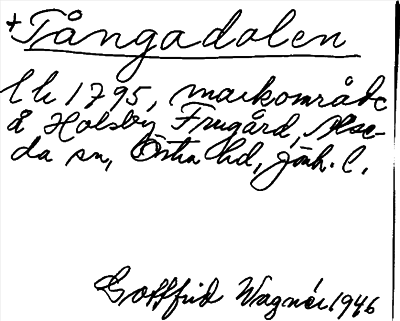 +Tångadalen
l h 1795, markområde
å Holsby Frugård, Alse-
da sn, Östra hd, Jönk. l.
Gottfrid Wagnér 1946